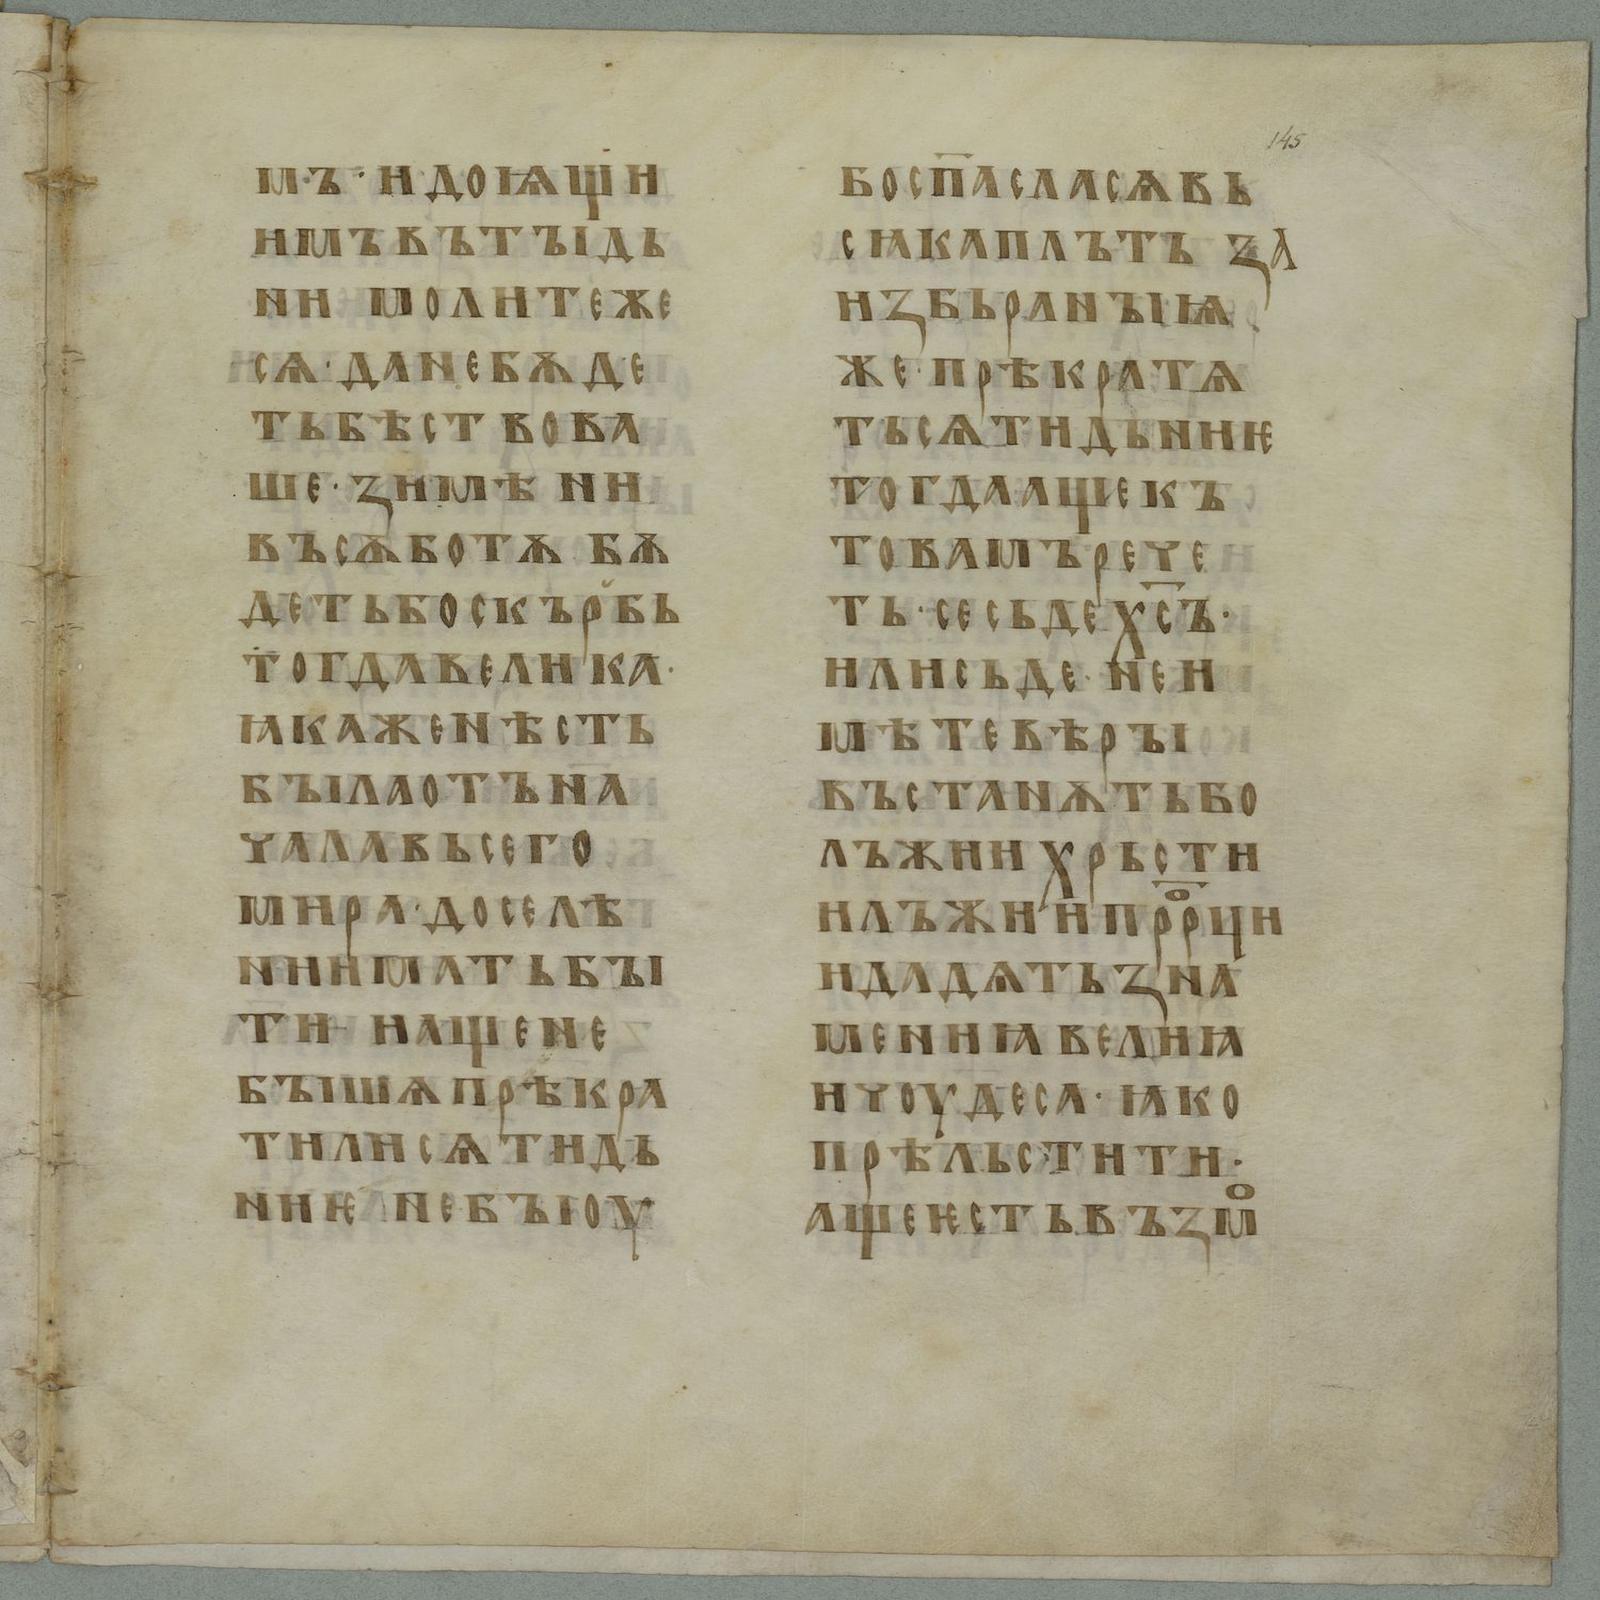 145
мъ · и доѩщи
имъ въ тъі дь
ни молитеже
сѧ · да не бѫде
ть бѣство ва
ше · ꙁимѣ ни
въ сѫботѫ бѫ
деть бо скърбь
тогда велика ·
ꙗкаже нѣсть
бъіла отъ на
чала вьсего
мира · доселѣ
ни имать бъі
ти и аще не
бъішѧ прѣкра
тили сѧ ти дь
ниѥ не бъі оу
бо сп҃асла сѧ вь
сꙗка плъть ꙁа
иꙁбьранъіѩ
же прѣкратѧ
ть сѧ ти дьниѥ
тогда аще къ
то вамъ рече
ть · се сьде х҃съ ·
или сьде · не и
мѣте вѣръі
въстанѫть бо
лъжии хрьсти
и лъжии прⷪ҇рци
и дадѧть ꙁна
мениꙗ велиꙗ
и чоудеса · ꙗко
прѣльстити ·
аще ѥсть въꙁмⷪ